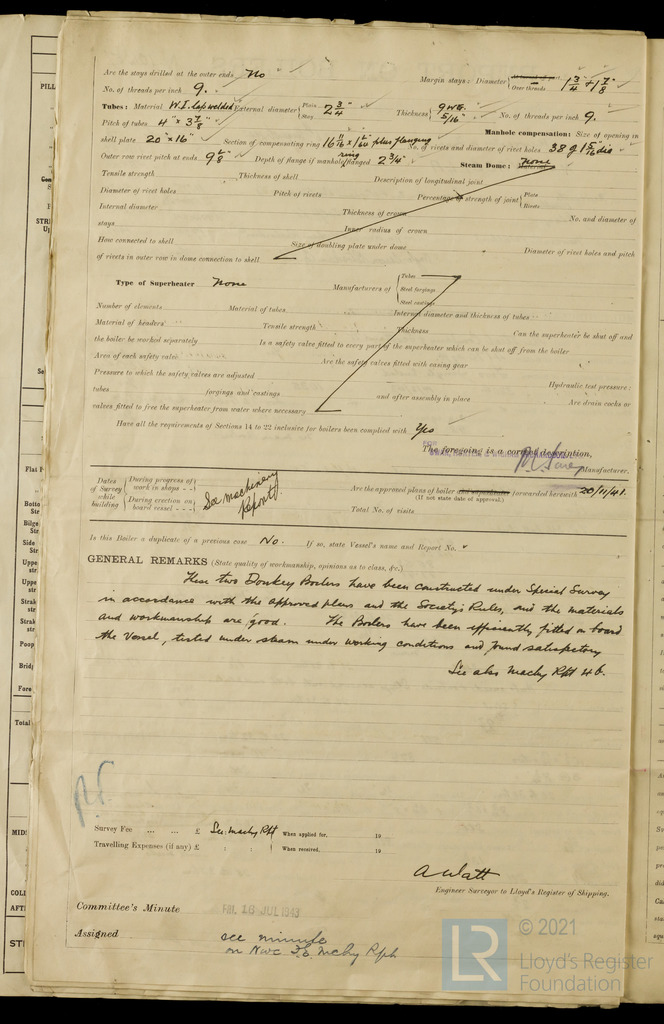 Are the stays drilled at the outer ends No
Margin stays: Diameter { At turned off part / Over threads 1 3/4 & 1 7/8
No. of threads per inch 9.
Tubes: Material W.I. lap welded External diameter { Plain / Stay 2 3/4" Thickness { 9 WG. / 5/16" No. of threads per inch 9.
Pitch of tubes 4" x 3 7/8" Manhole compensation: Size of opening in
shell plate 20" x 16" Section of compensating ring plus flanging No. of rivets and diameter of rivet holes 38 of 1 5/16 dia
Outer row rivet pitch at ends Depth of flange if manhole flanged ring 2 3/4" Steam Dome: Material none
Tensile strength Thickness of shell Description of longitudinal joint
Diameter of rivet holes Pitch of rivets Percentage of strength of joint { Plate / Rivets
Internal diameter Thickness of crown No. and diameter of
stays Inner radius of crown
How connected to shell Size of doubling plate under dome Diameter of rivet holes and pitch
of rivets in outer row in dome connection to shell
Type of Superheater None Manufacturers of { Tubes / Steel forgings / Steel castings
Number of elements Material of tubes Internal diameter and thickness of tubes
Material of headers Tensile strength Thickness Can the superheater be shut off and
the boiler be worked separately Is a safety valve fitted to every part of the superheater which can be shut off from the boiler
Area of each safety valve Are the safety valves fitted with easing gear
Pressure to which the safety valves are adjusted Hydraulic test pressure:
tubes forgings and castings and after assembly in place Are drain cocks or
valves fitted to free the superheater from water where necessary
Have all the requirements of Sections 14 to 22 inclusive for boilers been complied with Yes
FOR
The foregoing is a correct description,
Manufacturer.
Dates of Survey while building { During progress of work in shops - - / During erection on board vessel - - - See machinery Report
Are the approved plans of boiler and superheater forwarded herewith 20/11/41.
(If not state date of approval.)
Total No. of visits
Is this Boiler a duplicate of a previous case No. If so, state Vessel's name and Report No.
GENERAL REMARKS (State quality of workmanship, opinions as to class, &c.)
These two Donkey Boilers have been constructed under Special Survey
in accordance with the approved plans and the Society's Rules, and the materials
and workmanship are good. The Boilers have been efficiently fitted on board
the Vessel, tested under steam under working conditions and found satisfactory
See also Machy Rpt 4 b.
Survey Fee ... ... £ See Machy Rpt When applied for, 19
Travelling Expenses (if any) £ : : When received, 19
A Watt
Engineer Surveyor to Lloyd's Register of Shipping.
Committee's Minute FRI. 16 JUL 1943
Assigned see minute
on Nwc F.E. Mchy Rpt
LR
© 2021
Lloyd's Register
Foundation